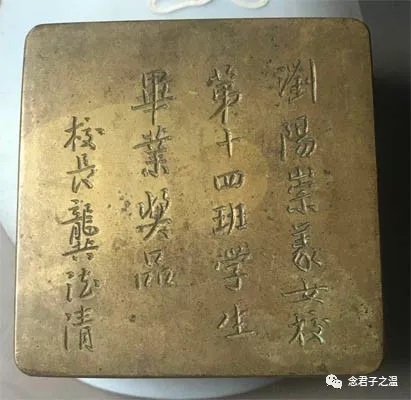 瀏陽崇義女校
第十四班学生
畢業獎品
校長龔法清
念君子之温